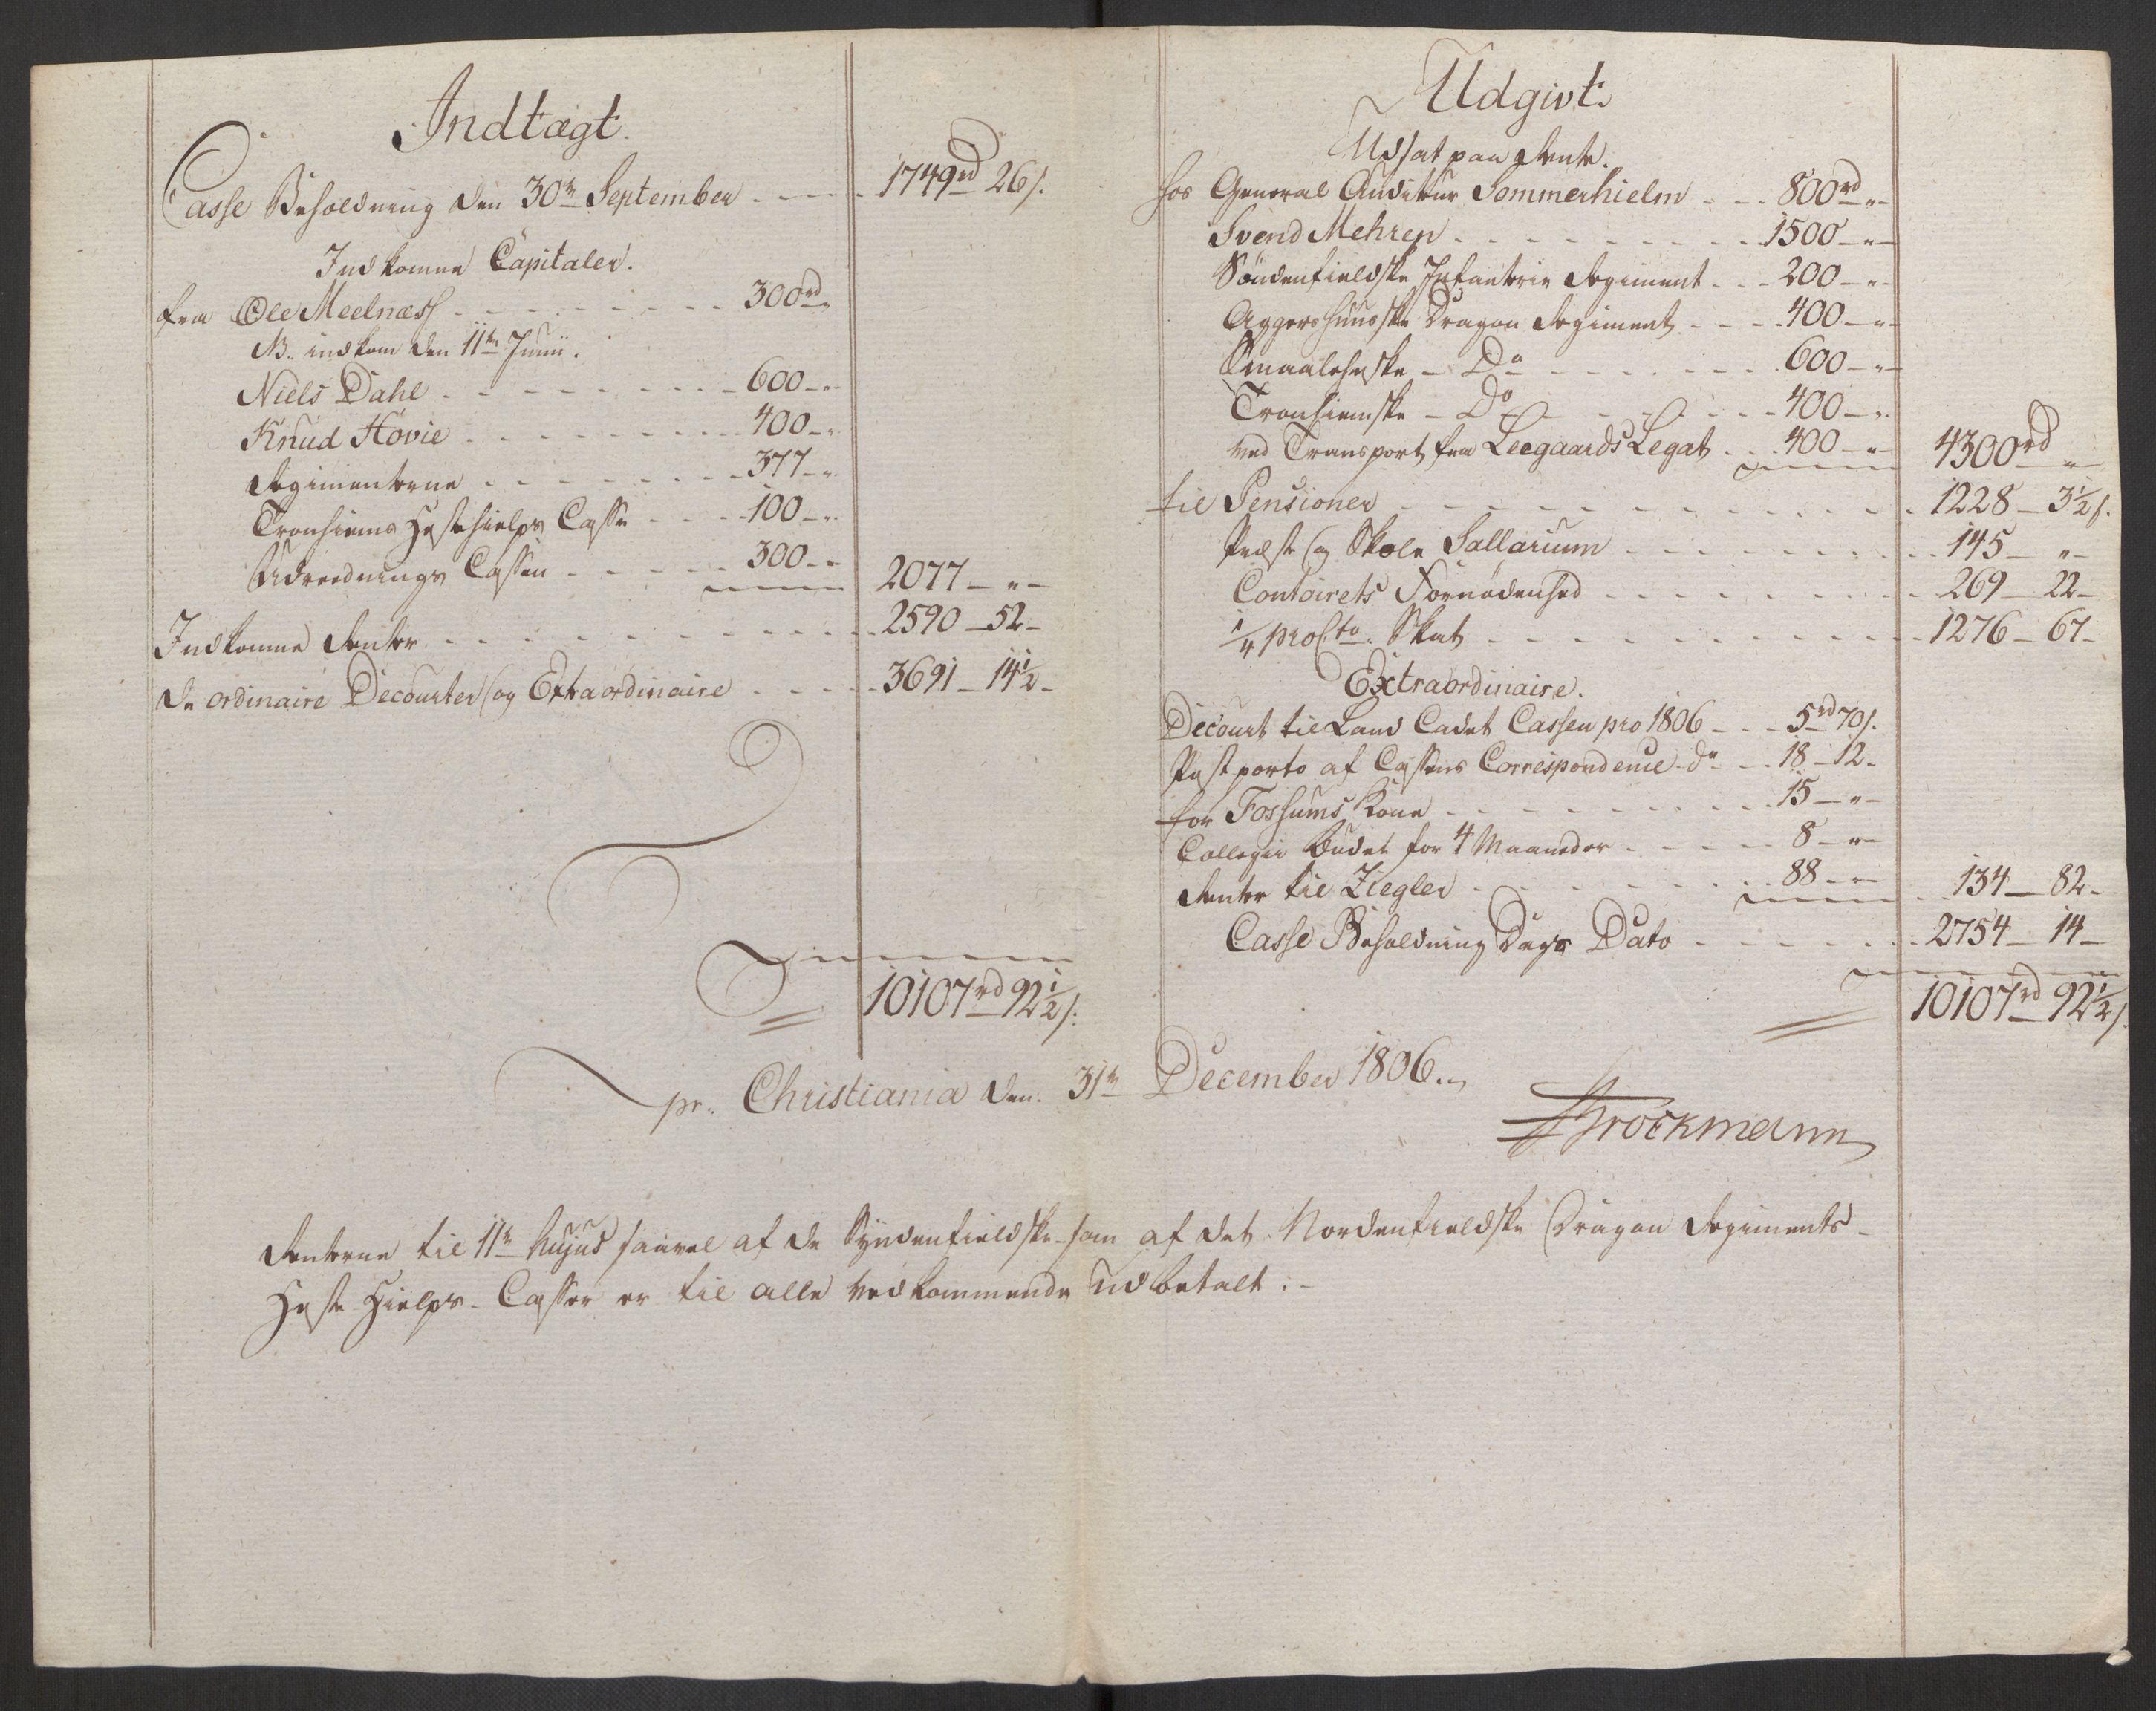 Indtægt.
Casse Beholdning den 30te September - - - - 1749rd 26s.
Indkomne Capitaler.
fra Ole Meelnæss - - - - - - - - 300rd "
NB. indkom den 11te Junii.
Niels Dahl - - - - - - - - 600 - "
Knud Hovie - - - - - - - - 400 - "
Regimenterne - - - - - - - - 377 - "
Tronhiems Hestehielps Casse - - - - 100 - "
Udrednings Cassen - - - - - - 300 - " 2077 - " -
Indkomne Renter - - - - - - - - - - - 2590 - 52 -
De ordinaire Decourter og Extraordinaire - - - - - 3691 - 14 1/2 -
10107rd 92 1/2 s.
Udgivt.
Udsat paa Rente.
hos General Auditeur Sommerhielm - - - 800rd " -
Svend Mehren - - - - - - - - - 1500 - " -
Söndenfieldske Infanterie Regiment - - - 200 - " -
Aggershuusske Dragon Regiment - - - - 400 - " -
Smaalehnske - Do - - - - - - - 600 - " -
Tronhiemske - Do - - - - - - - 400 - " -
ved Transport fra Leegaards Legat - - - 400 - " - 4300rd "
til Pensioner - - - - - - - - - - - - - 1228 - 3 1/2 s.
Præste og Skole Sallarium - - - - - - - - - 145 - " -
Contoirets Fornödenhed - - - - - - - - - 269 - 22 -
1/4 pro Cto. Skat - - - - - - - - - - - 1276 - 67 -
Extraordinaire.
Decourt til Land Cadet Cassen pro 1806 - - - 5rd 70s.
Postporto af Cassens Correspondence do - - 18 - 12 -
for Fossums Kone - - - - - - - - - 15 - " -
Collegii Budet for 4 Maaneder - - - - - 8 - " -
Renter til Ziegler - - - - - - - - 88 - " - 134 - 82 -
Casse Beholdning Dags Dato - - - - - - - 2754 - 14 -
10107rd 92 1/2 s.
pr. Christiania den 31te December 1806.
Brockmann
Renterne til 11te hujus saavel af de Syndenfieldske som af det Nordenfieldske Dragon Regiments-
Heste Hielps-Casser er til alle vedkommende udbetalt. -